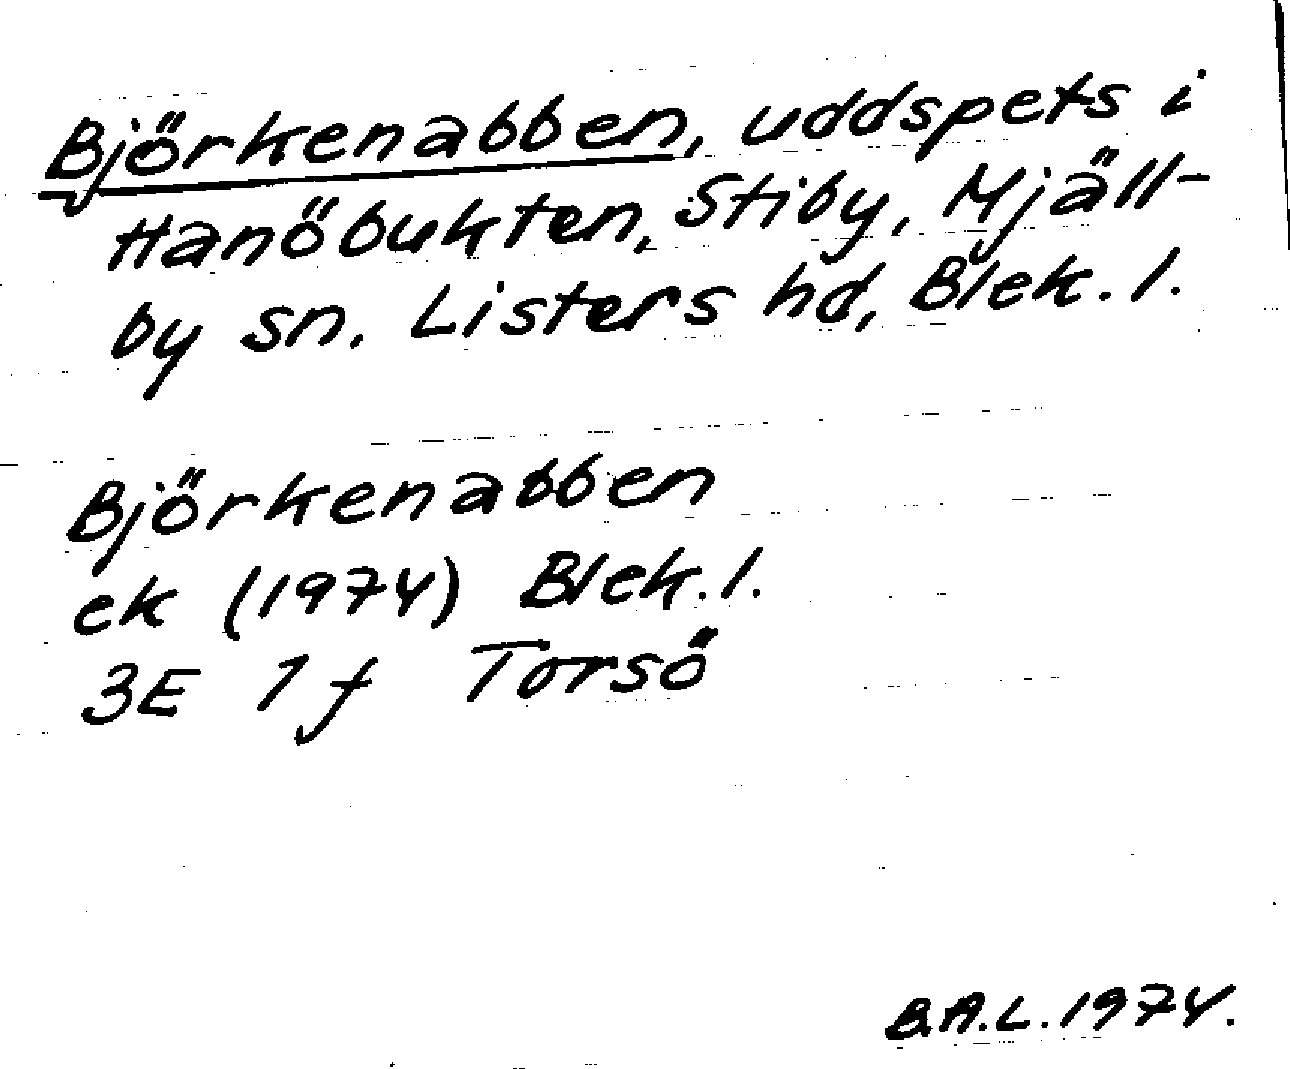 Björkenabben, uddspets i
Hanöbukten, Stiby, Mjäll-
by sn. Listers hd, Blek. l.
Björkenabben
ek (1974) Blek. l.
3E 7f Torsö
B.A.L. 1974.